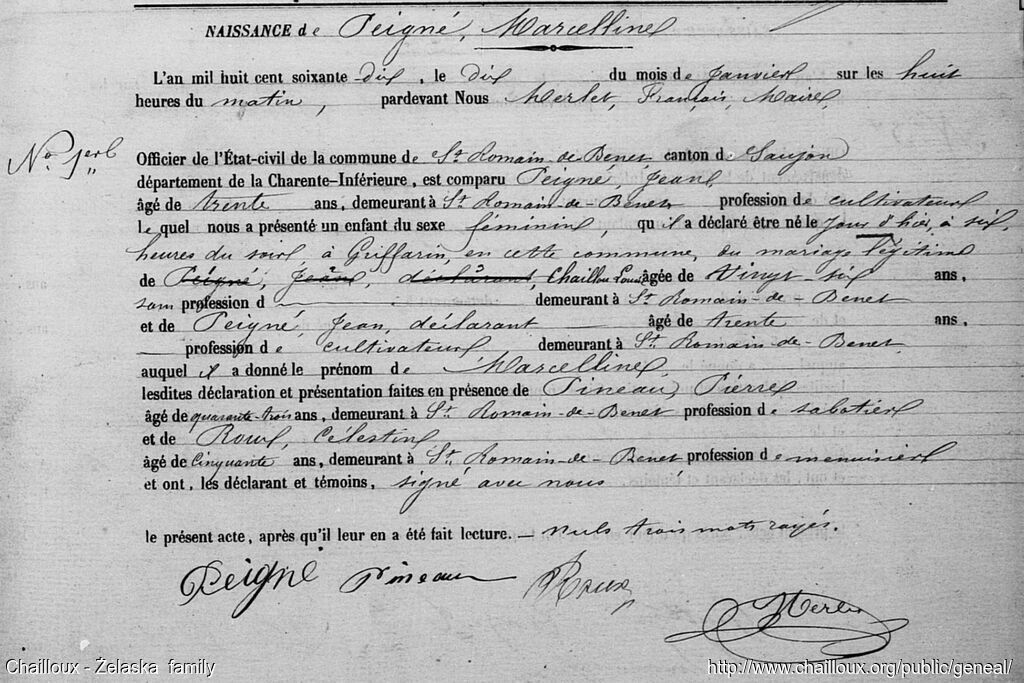 NAISSANCE de Peigné, Marcelline
L'an mil huit cent soixante-dix, le dix du mois de Janvier sur les huit
heures du matin, pardevant Nous Merlet, François, Maire,
No. 1er
Officier de l'État-civil de la commune de St Romain-de-Benet canton de Saujon
département de la Charente-Inférieure, est comparu Peigné, Jean,
âgé de trente ans, demeurant à St Romain-de-Benet profession de cultivateur
lequel nous a présenté un enfant du sexe féminin, qu'il a déclaré être né le jour d'hier, à six
heures du soir, à Griffarin, en cette commune, du mariage légitime
de Peigné, Jean, déclarant, Chaillou Louise âgée de vingt-six ans,
sans profession d demeurant à St Romain-de-Benet
et de Peigné Jean, déclarant âgé de trente ans,
profession de cultivateur demeurant à St Romain-de-Benet
auquel il a donné le prénom de Marcelline
lesdites déclaration et présentation faites en présence de Pineau, Pierre
âgé de quarante-trois ans, demeurant à St Romain-de-Benet profession de sabotier
et de Roux, Célestin,
âgé de Cinquante ans, demeurant à St Romain-de-Benet profession de menuisier
et ont, les déclarant et témoins, signé avec nous
le présent acte, après qu'il leur en a été fait lecture. — nuls trois mots rayés.
Peigné Pineau Roux
Merlet
Chailloux - Żelaska family
http://www.chailloux.org/public/geneal/